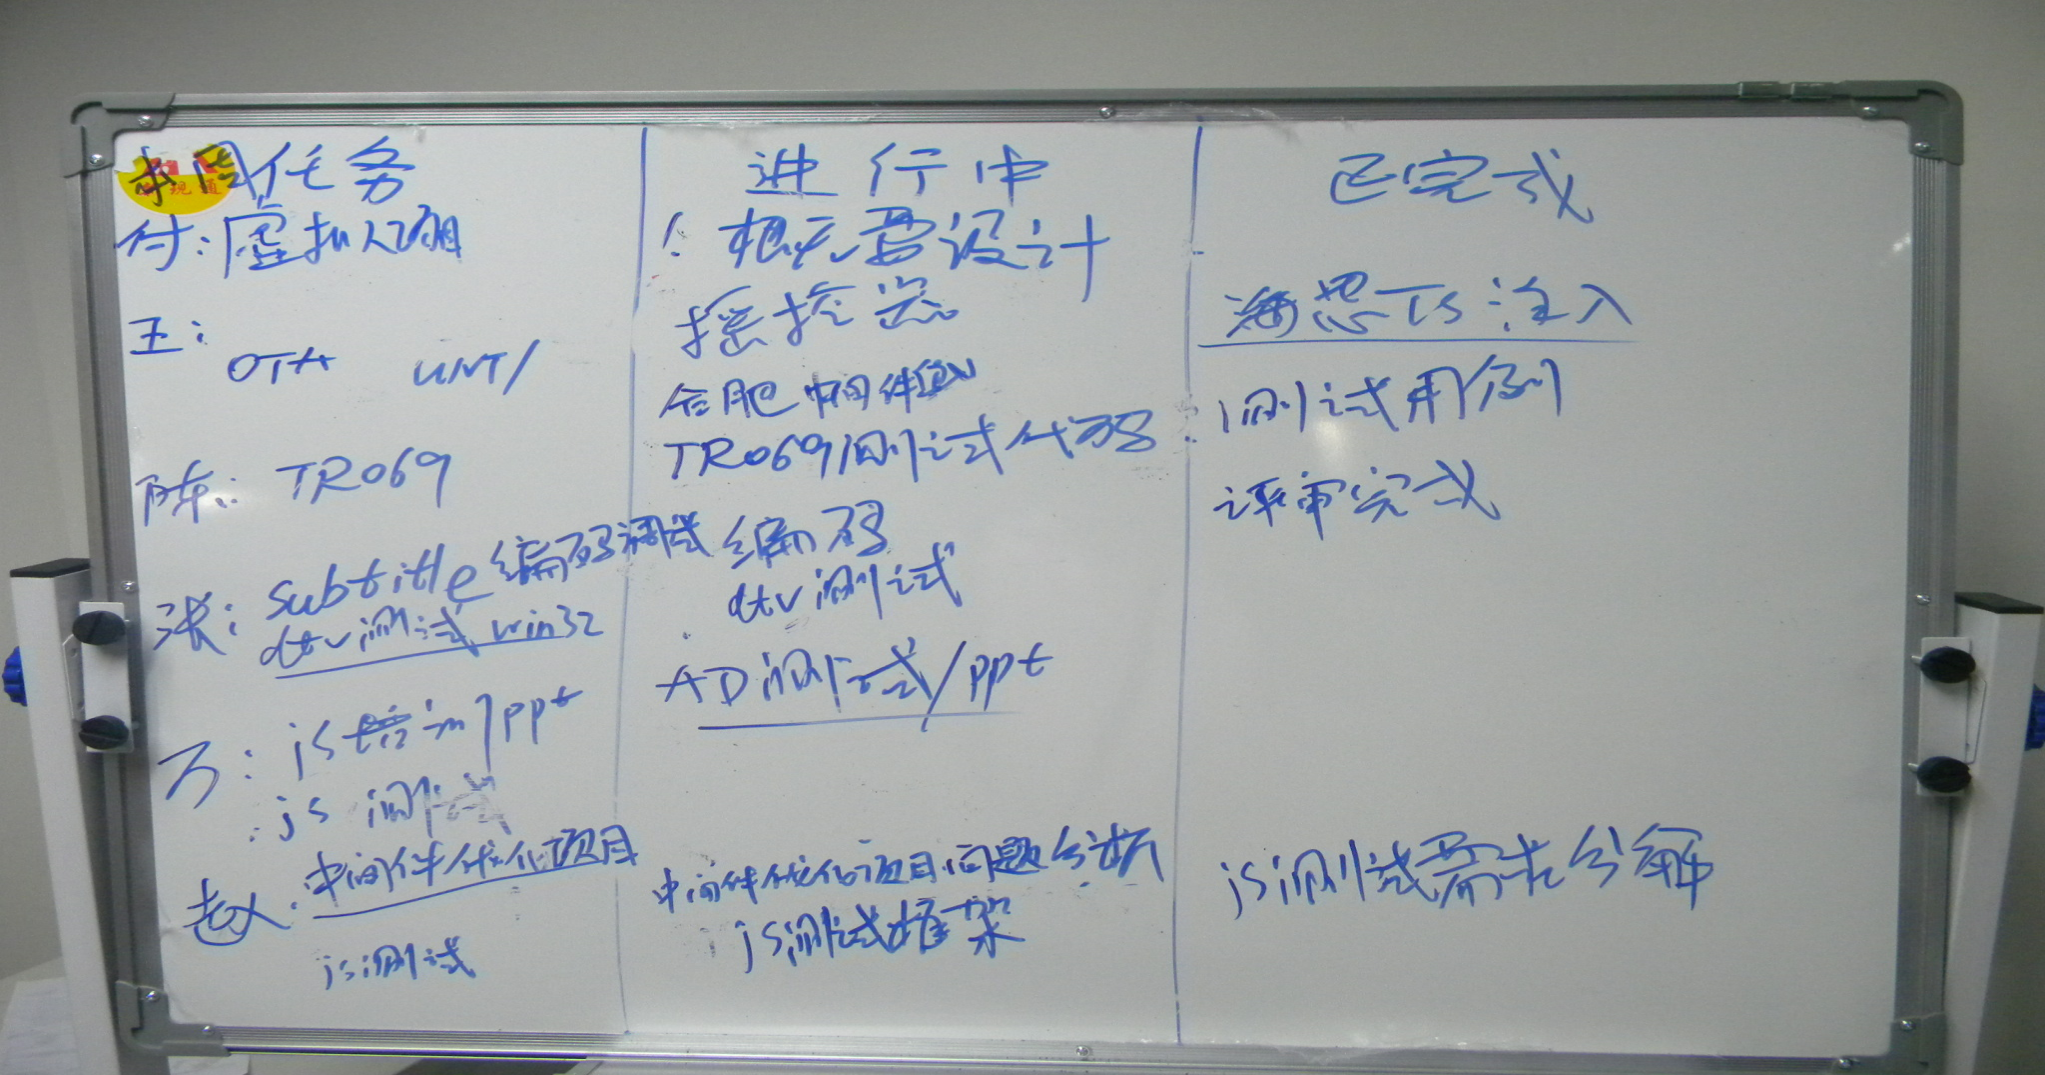 本周任务
付：虚拟项目
王：
OTA UNT/
陈： TR069
张：subtitle编码调试
dtv测试 win32
万：js培训ppt
js 测试
赵：中间件优化项目
js测试
进行中
概要设计
摇控器
合肥中间件
TR069测试代码
编码
dtv测试
AD测试/ppt
中间件优化项目问题分析
js测试框架
已完成
海思TS注入
测试用例
评审完成
js测试需求分解